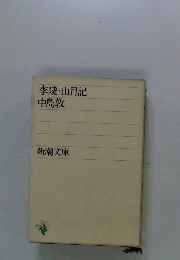 李陵・山月記
中島敦
新潮文庫